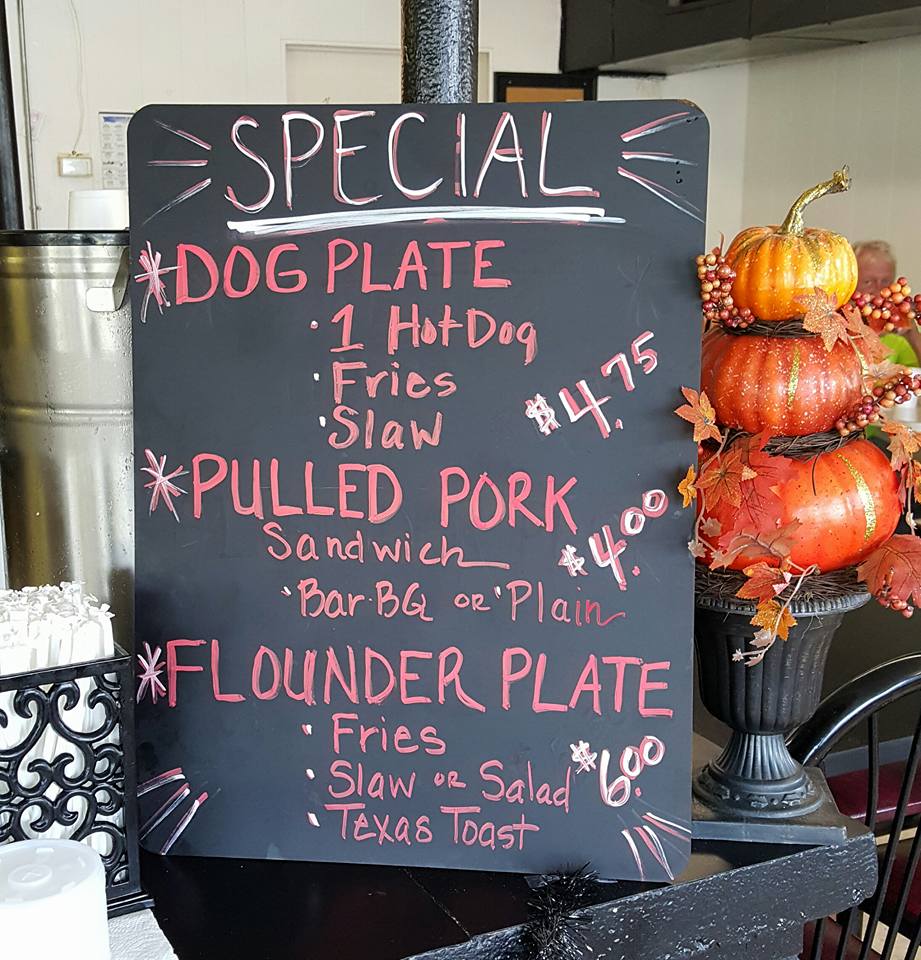 SPECIAL
*DOG PLATE
· 1 HotDog
· Fries
· Slaw
$4.75
*PULLED PORK
Sandwich
$4.00
·Bar·BQ OR ·Plain
*FLOUNDER PLATE
· Fries
· Slaw OR Salad
$6.00
· Texas Toast